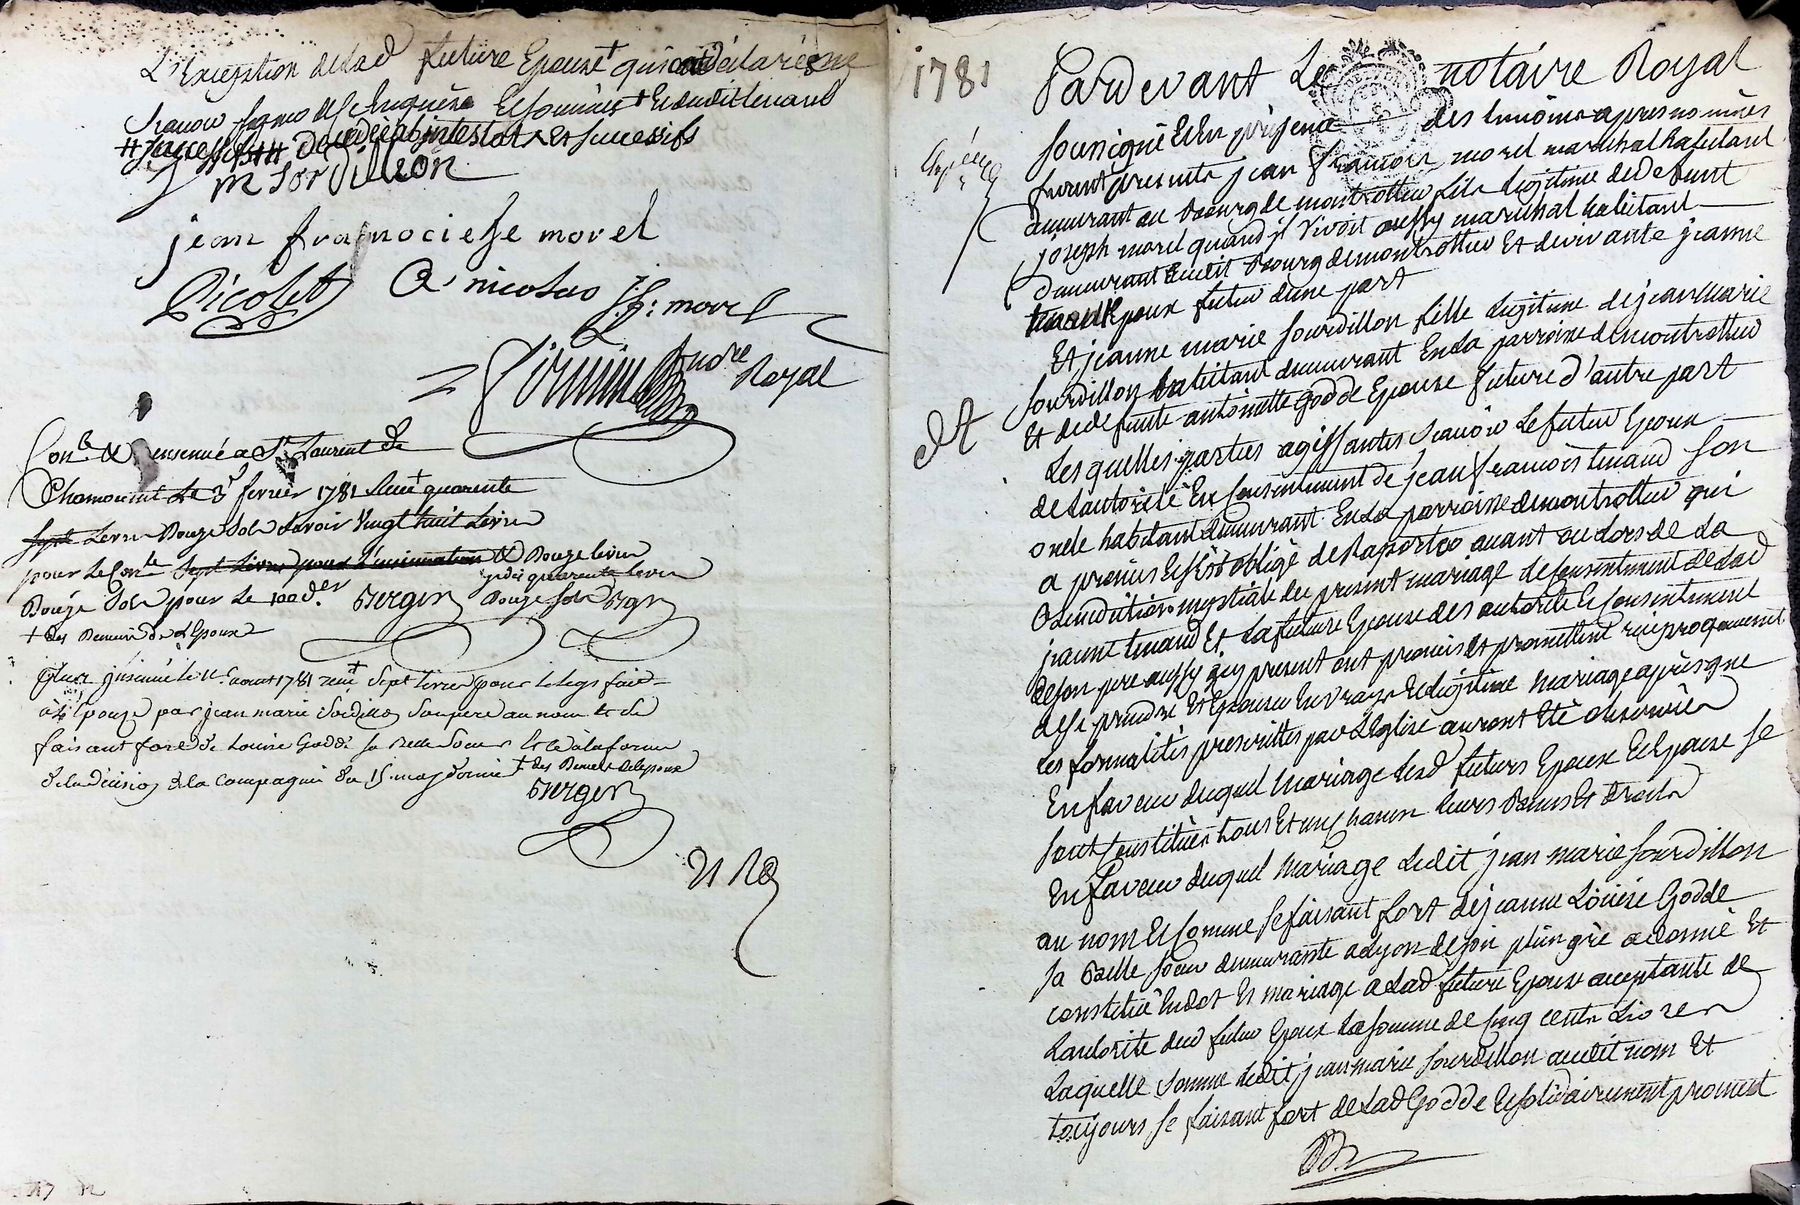 L'Exception de lad future Epouse + qui a déclaré ne
scavoir signer de ce enquise Et sommée + Et dudit tenaud
m Sordillon
jean franociese morel
Picolet A nicolas j.f: morel
Firmin Nore Royal
Con.lé & insinué a St Laurent de
Chamousset Le 3 fevrier 1781 Reçu + quarante
sept Livres Douze sols Savoir Vingt huit Livres
pour Le Con.le sept Livres pour L'insinuation & Douze livres
Douze sols pour Le 100.der Berger
Douze sols Berger
+ des Deniers de L'Epoux
Plus insinué le 11 aout 1781 reçu + Sept livres pour le legs fait
a l'Epouze par jean marie Sordillon Son pere au nom et se
faisant fort de Louise Goddé sa belle Soeur et ce a la forme
de la décision de la Compagnie du 15 may dernier + des Deniers de l'epoux
Berger
1781
Pardevant Le notaire Royal
soussigné Et En présence des temoins apres nommés
furent presents jean françois morel marechal habitant
demeurant au bourg de montrottier fils legitime de defunt
joseph morel quand il vivoit aussy marechal habitant
demeurant audit bourg de montrottier Et de vivante jeanne
tenaud Epoux futur d'une part
Et jeanne marie Sourdillon fille legitime de jean marie
Sourdillon habitant demeurant En la parroisse de montrottier
Et de defunte antoinette Godde Epouse future d'autre part
Lesquelles parties agissantes scavoir Le futur Epoux
de L'autorité Et Consentement de jean françois tenaud son
oncle habitant demeurant En la parroisse de montrottier qui
a promis Et s'est obligé de Raporter avant ou Lors de La
Benediction nuptiale du present mariage le consentement de lad
jeanne tenaud Et La future Epouse des autorité Et Consentement
de son pere aussy icy present ont promis Et promettent reciproquement
de se prendre Et Epouser En vray Et legitime mariage apres que
les formalités prescrittes par L'Eglise auront été observées
En faveur duquel mariage lesd futurs Epoux Et Epouse se
sont Constitués tous Et un chacun leurs biens Et droits
En faveur duquel mariage ledit jean marie Sourdillon
au nom Et Comme se faisant fort de jeanne Loüise Godde
sa belle soeur demeurante a Lyon de son plein gré a donné Et
constitué En dot Et mariage a Lad future Epouse acceptante de
L'autorité dud futur Epoux La somme de Cinq cents Livres
Laquelle somme ledit jean marie Sourdillon audit nom Et
toujours se faisant fort de Lad Godde Et solidairement promest